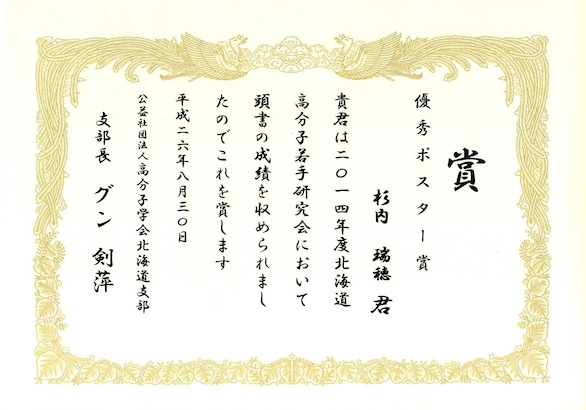 賞
優秀ポスター賞
杉内 瑞穂 君
貴君は二〇一四年度北海道
高分子若手研究会において
頭書の成績を収められまし
たのでこれを賞します
平成二六年八月三〇日
公益社団法人高分子学会北海道支部
支部長 グン 剣萍